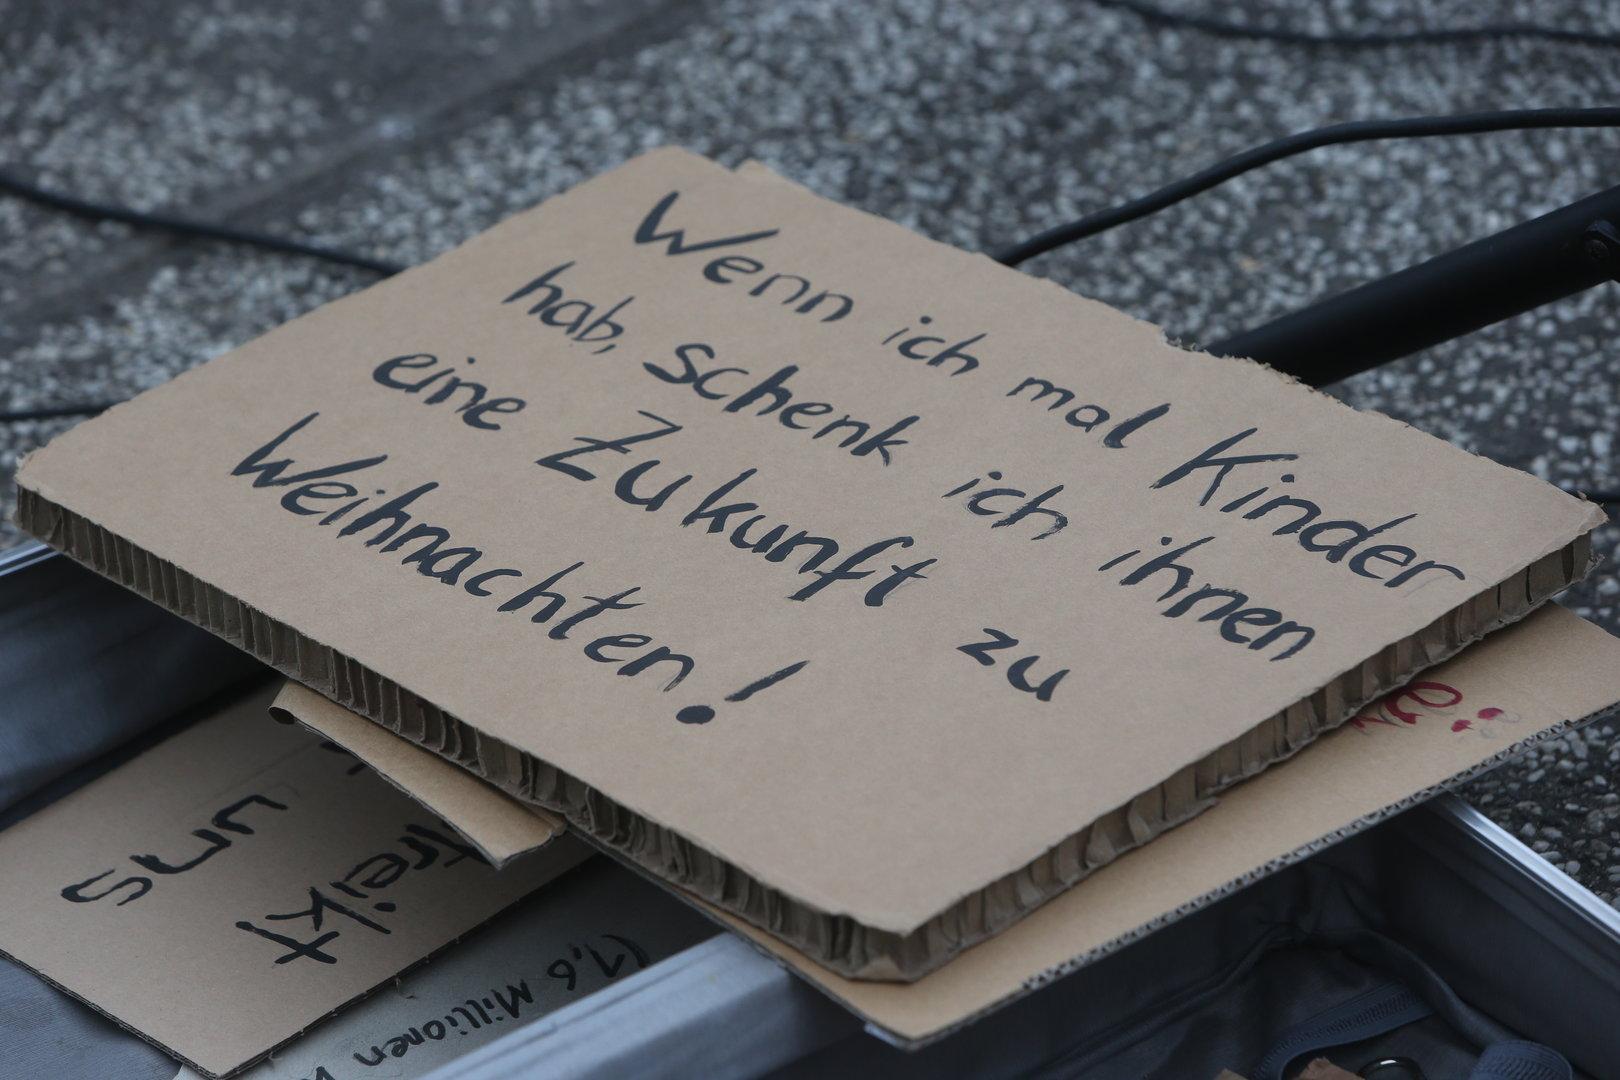 Wenn ich mal Kinder
hab, schenk ich ihnen
eine Zukunft zu
Weihnachten!
uns
treikt
(1,6 Millionen